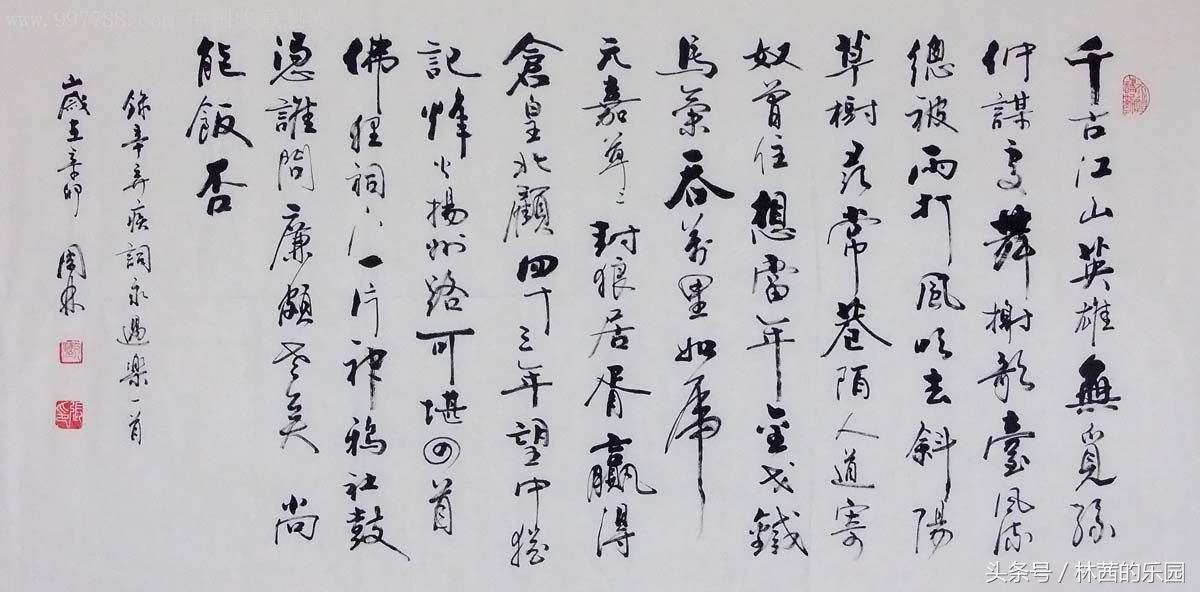 千古江山英雄無覓孫
仲謀處舞榭歌臺風流
總被雨打風吹去斜陽
草樹尋常巷陌人道寄
奴曾住想當年金戈鐵
馬氣吞萬里如虎
元嘉草々封狼居胥贏得
倉皇北顧四十三年望中猶
記烽火揚州路可堪回首
佛狸祠下一片神鴉社鼓
憑誰問廉頗老矣 尚
能飯否
錄辛弃疾詞永遇樂一首
歲在辛卯 周林
www.997788.com
头条号 / 林茜的乐园